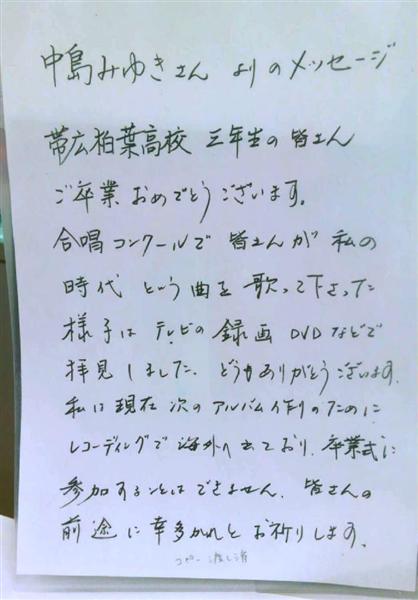 中島みゆきさん よりのメッセージ
帯広柏葉高校 三年生の皆さん
ご卒業おめでとうございます。
合唱コンクールで 皆さんが 私の
時代 という曲を 歌って下さった
様子は テレビの 録画 DVDなどで
拝見しました。どうもありがとうございます。
私は現在 次の アルバム作りのために
レコーディングで 海外へ出ており、卒業式に
参加することはできません。皆さんの
前途に 幸多かれと お祈りします。
コピー 渡し済